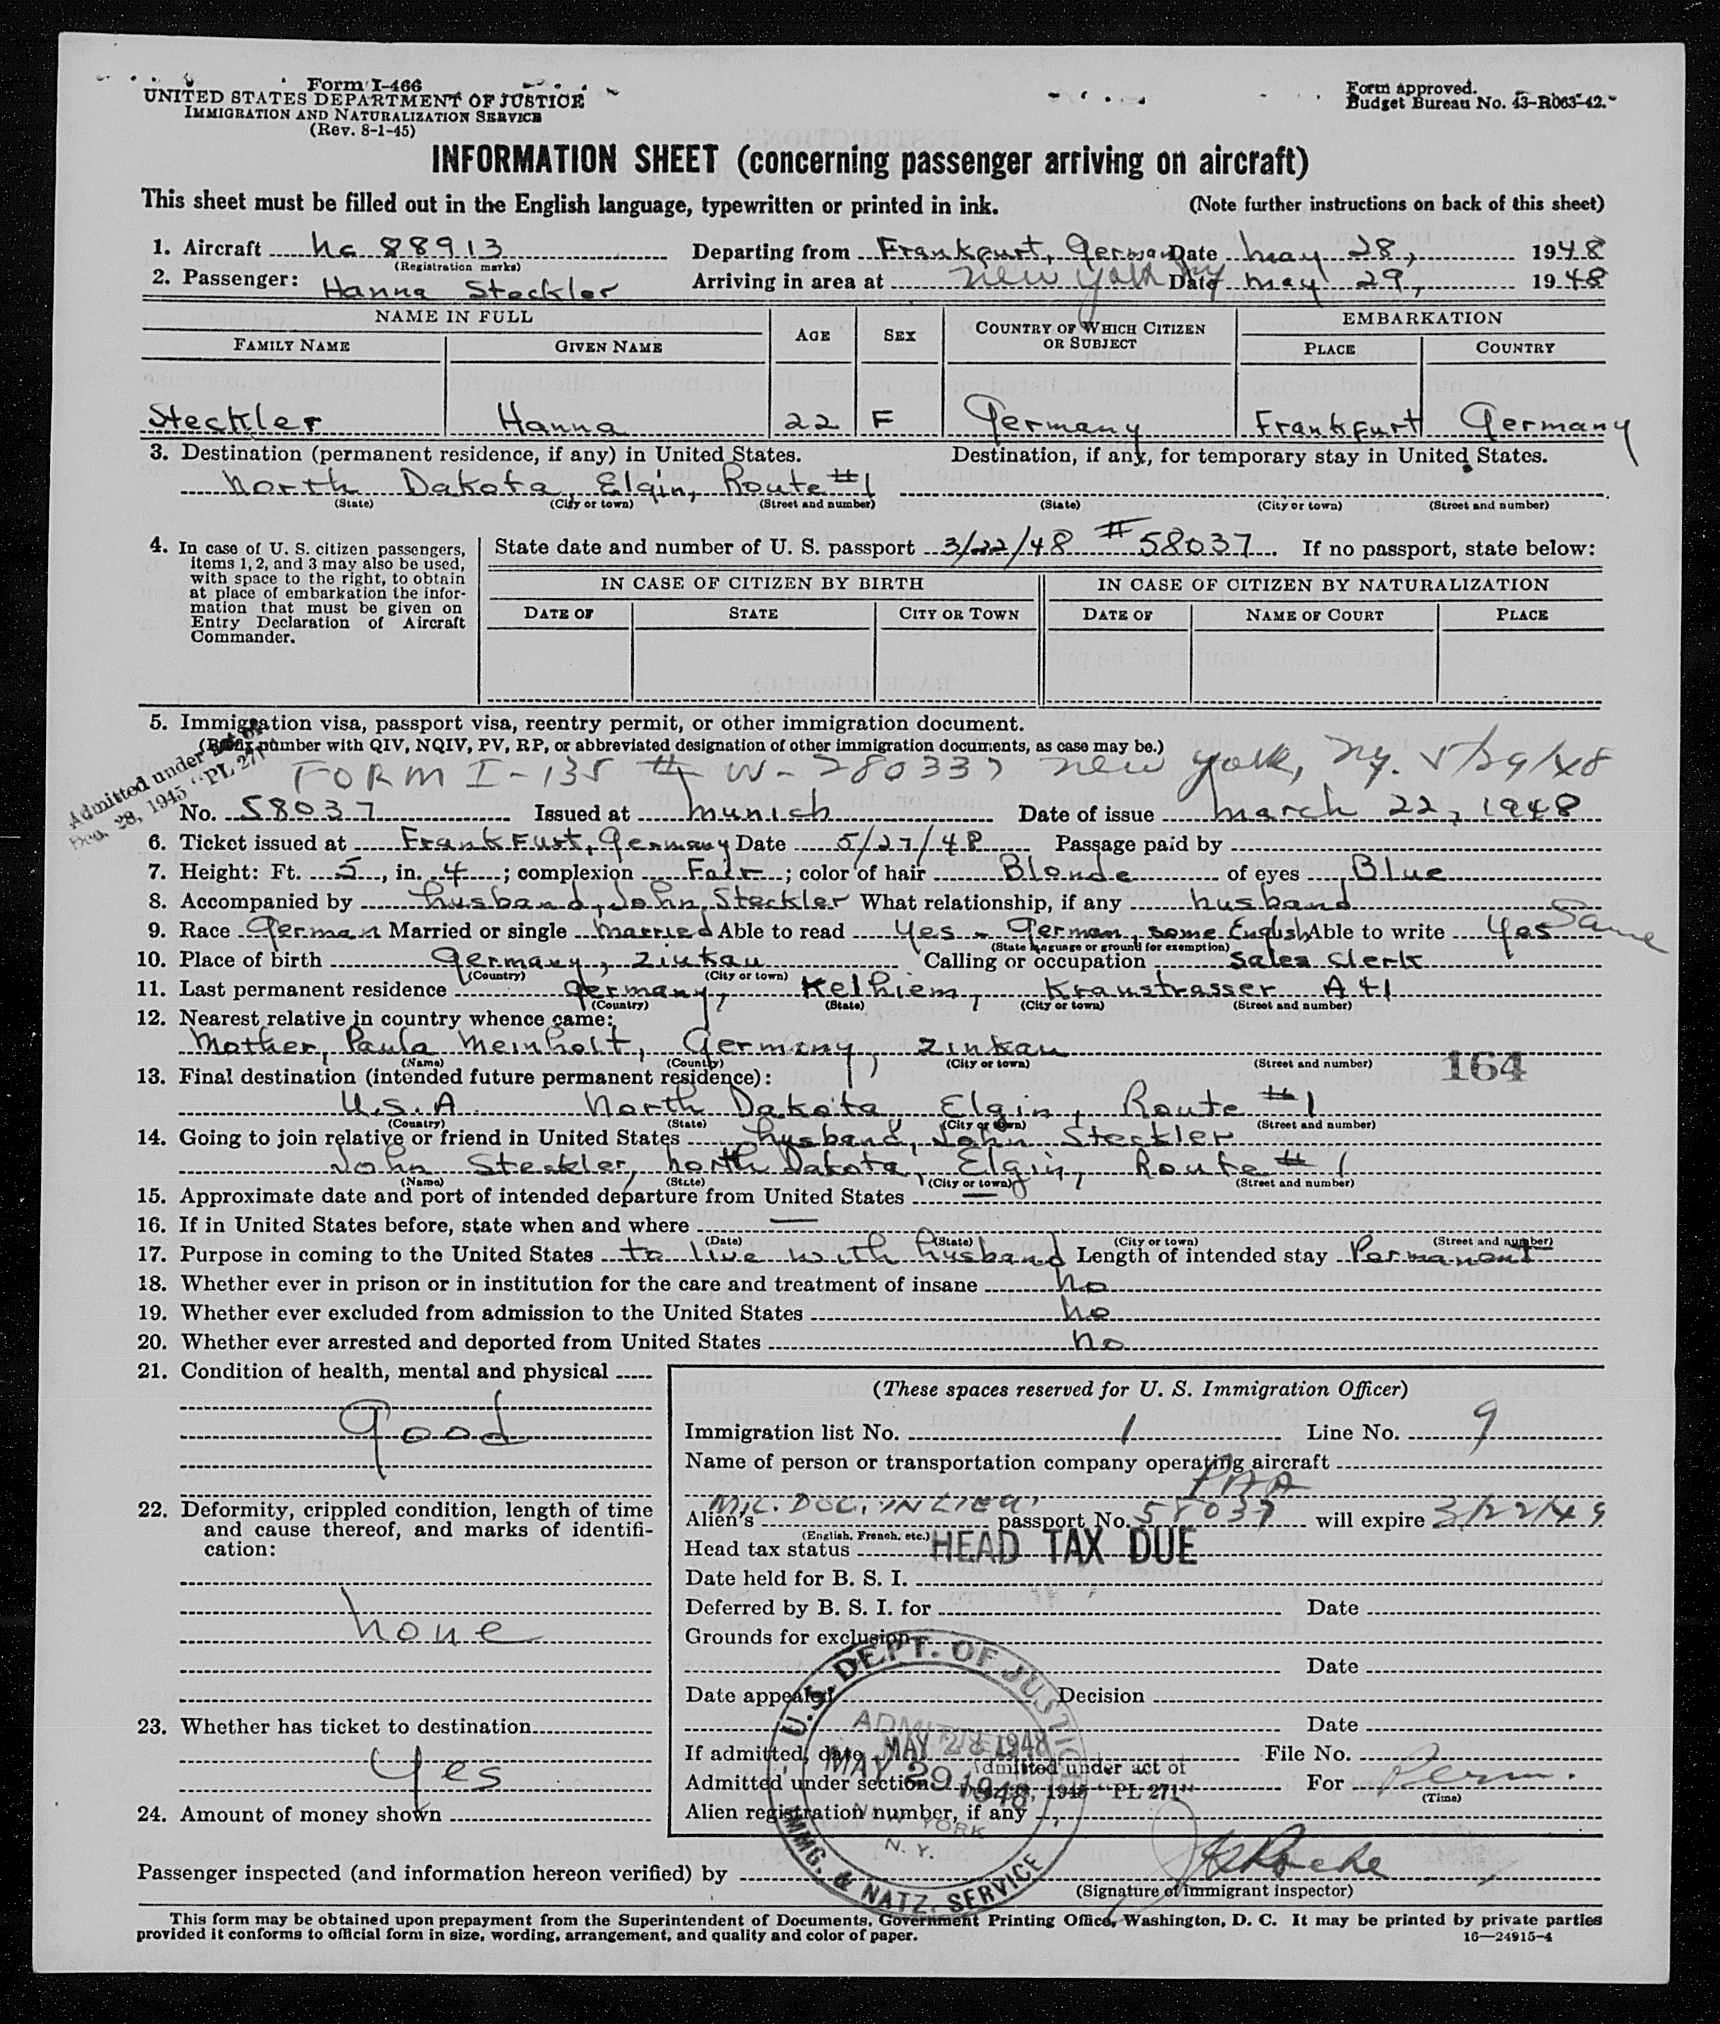 Form I-466
UNITED STATES DEPARTMENT OF JUSTICE
IMMIGRATION AND NATURALIZATION SERVICE
(Rev. 8-1-45)
Form approved.
Budget Bureau No. 43-R063-42.
INFORMATION SHEET (concerning passenger arriving on aircraft)
This sheet must be filled out in the English language, typewritten or printed in ink. (Note further instructions on back of this sheet)
1. Aircraft Nc 88913 Departing from Frankfurt, Germany Date May 28, 1948
(Registration marks)
2. Passenger: Hanna Steckler Arriving in area at New York Ny Date May 29, 1948
NAME IN FULL AGE SEX COUNTRY OF WHICH CITIZEN OR SUBJECT EMBARKATION
FAMILY NAME GIVEN NAME PLACE COUNTRY
Steckler Hanna 22 F Germany Frankfurt Germany
3. Destination (permanent residence, if any) in United States. Destination, if any, for temporary stay in United States.
North Dakota, Elgin, Route #1
(State) (City or town) (Street and number) (State) (City or town) (Street and number)
4. In case of U. S. citizen passengers, items 1, 2, and 3 may also be used, with space to the right, to obtain at place of embarkation the information that must be given on Entry Declaration of Aircraft Commander.
State date and number of U. S. passport 3/22/48 # 58037. If no passport, state below:
IN CASE OF CITIZEN BY BIRTH IN CASE OF CITIZEN BY NATURALIZATION
DATE OF STATE CITY OR TOWN DATE OF NAME OF COURT PLACE
5. Immigration visa, passport visa, reentry permit, or other immigration document.
(Prefix number with QIV, NQIV, PV, RP, or abbreviated designation of other immigration documents, as case may be.)
Admitted under act of
Dec. 28, 1945 "PL 271"
FORM I-135 # W-280337 New York, Ny. 5/29/48
No. 58037 Issued at Munich Date of issue March 22, 1948
6. Ticket issued at Frankfurt, Germany Date 5/27/48 Passage paid by
7. Height: Ft. 5, in. 4; complexion Fair; color of hair Blonde of eyes Blue
8. Accompanied by husband, John Steckler What relationship, if any husband
9. Race German Married or single Married Able to read Yes - German, some English Able to write Yes Same
(State language or ground for exemption)
10. Place of birth Germany, Zinkau Calling or occupation Sales Clerk
(Country) (City or town)
11. Last permanent residence Germany, Kelhiem, Kranstrasser A 41
(Country) (State) (City or town) (Street and number)
12. Nearest relative in country whence came:
Mother, Paula Meinholt, Germany, Zinkau
(Name) (Country) (City or town) (Street and number)
164
13. Final destination (intended future permanent residence):
U.S.A North Dakota, Elgin, Route #1
(Country) (State) (City or town) (Street and number)
14. Going to join relative or friend in United States husband, John Steckler
John Steckler, North Dakota, Elgin, Route #1
(Name) (State) (City or town) (Street and number)
15. Approximate date and port of intended departure from United States —
16. If in United States before, state when and where —
(Date) (State) (City or town) (Street and number)
17. Purpose in coming to the United States to live with husband Length of intended stay Permanent
18. Whether ever in prison or in institution for the care and treatment of insane No
19. Whether ever excluded from admission to the United States No
20. Whether ever arrested and deported from United States No
21. Condition of health, mental and physical
Good
22. Deformity, crippled condition, length of time and cause thereof, and marks of identification:
None
23. Whether has ticket to destination
Yes
24. Amount of money shown
(These spaces reserved for U. S. Immigration Officer)
Immigration list No. 1 Line No. 9
Name of person or transportation company operating aircraft
PAA
MIL. DOC. IN LIEU
Alien's passport No. 58037 will expire 3/22/49
(English, French, etc.)
Head tax status HEAD TAX DUE
Date held for B. S. I.
Deferred by B. S. I. for Date
Grounds for exclusion
Date
Date appealed Decision
Date
If admitted, date MAY 28 1948 File No.
Admitted under section Admitted under act of Dec. 28, 1945 "PL 271" For Perm.
(Time)
Alien registration number, if any
U.S. DEPT. OF JUSTICE
ADMITTED
MAY 29 1948
NEW YORK
N. Y.
IMMG. & NATZ. SERVICE
Passenger inspected (and information hereon verified) by
(Signature of immigrant inspector)
This form may be obtained upon prepayment from the Superintendent of Documents, Government Printing Office, Washington, D. C. It may be printed by private parties
provided it conforms to official form in size, wording, arrangement, and quality and color of paper. 16—24915-4